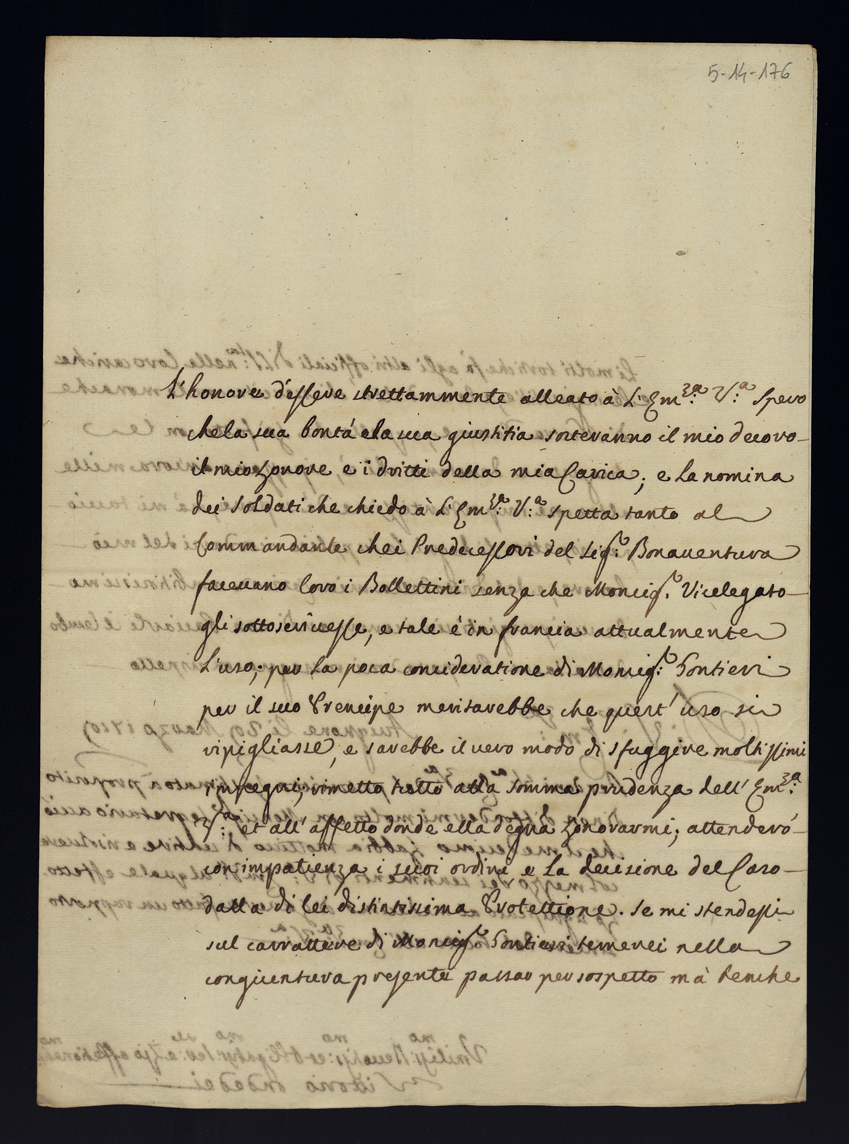 5-14-176
L'honore d'essere strettammente alleato à L'Em.za V.a spero
che la sua bontà e la sua giustitia sorteranno il mio decoro
il mio honore e i dritti della mia Carica; e La nomina
dei soldati che chiedo à L'Em.za V.a spetta tanto al
Commandante che i Predecessori del sig.r Bonaventura
facevano loro i Bollettini senza che Moncig.r Vicelegato
gli sottoscrivesse, e tale é in francia attualmente
L'uso; per La poca concideratione di Moncig.r Gontieri
per il suo Prencipe meritarebbe che quest' uso si
ripigliasse, e sarebbe il vero modo di sfuggire moltissimi
impegni; rimetto tutto alla somma prudenza dell' Em.za
V.a et all' affetto donde ella degna honorarmi; attenderó
con impatienza i suoi ordini e La decisione del Caso
dalla di lei distintissima Protettione. se mi stendessi
sul carrattere di Moncig.r Gontieri temerei nella
congiuntura presente passar per sospetto mà benche